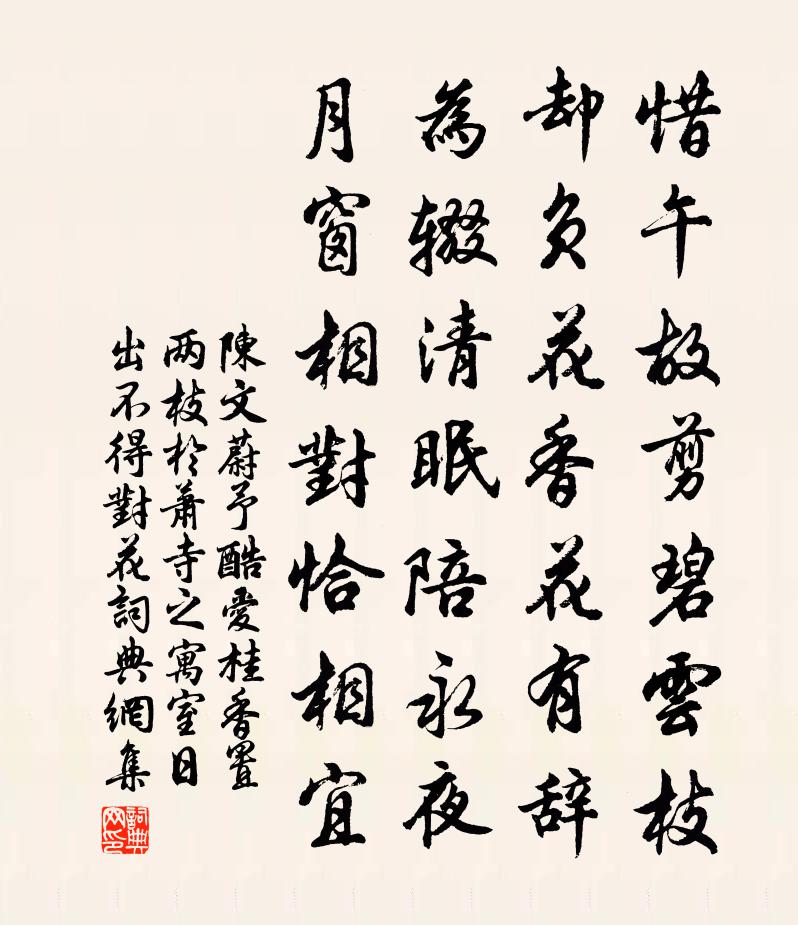 惜午故剪碧雲枝
却负花香花有辞
為辍清眠陪永夜
月窗相對恰相宜
陳文蔚予酷愛桂香置
两枝於蕭寺之寓室日
出不得對花詞典網集
詞典
网印